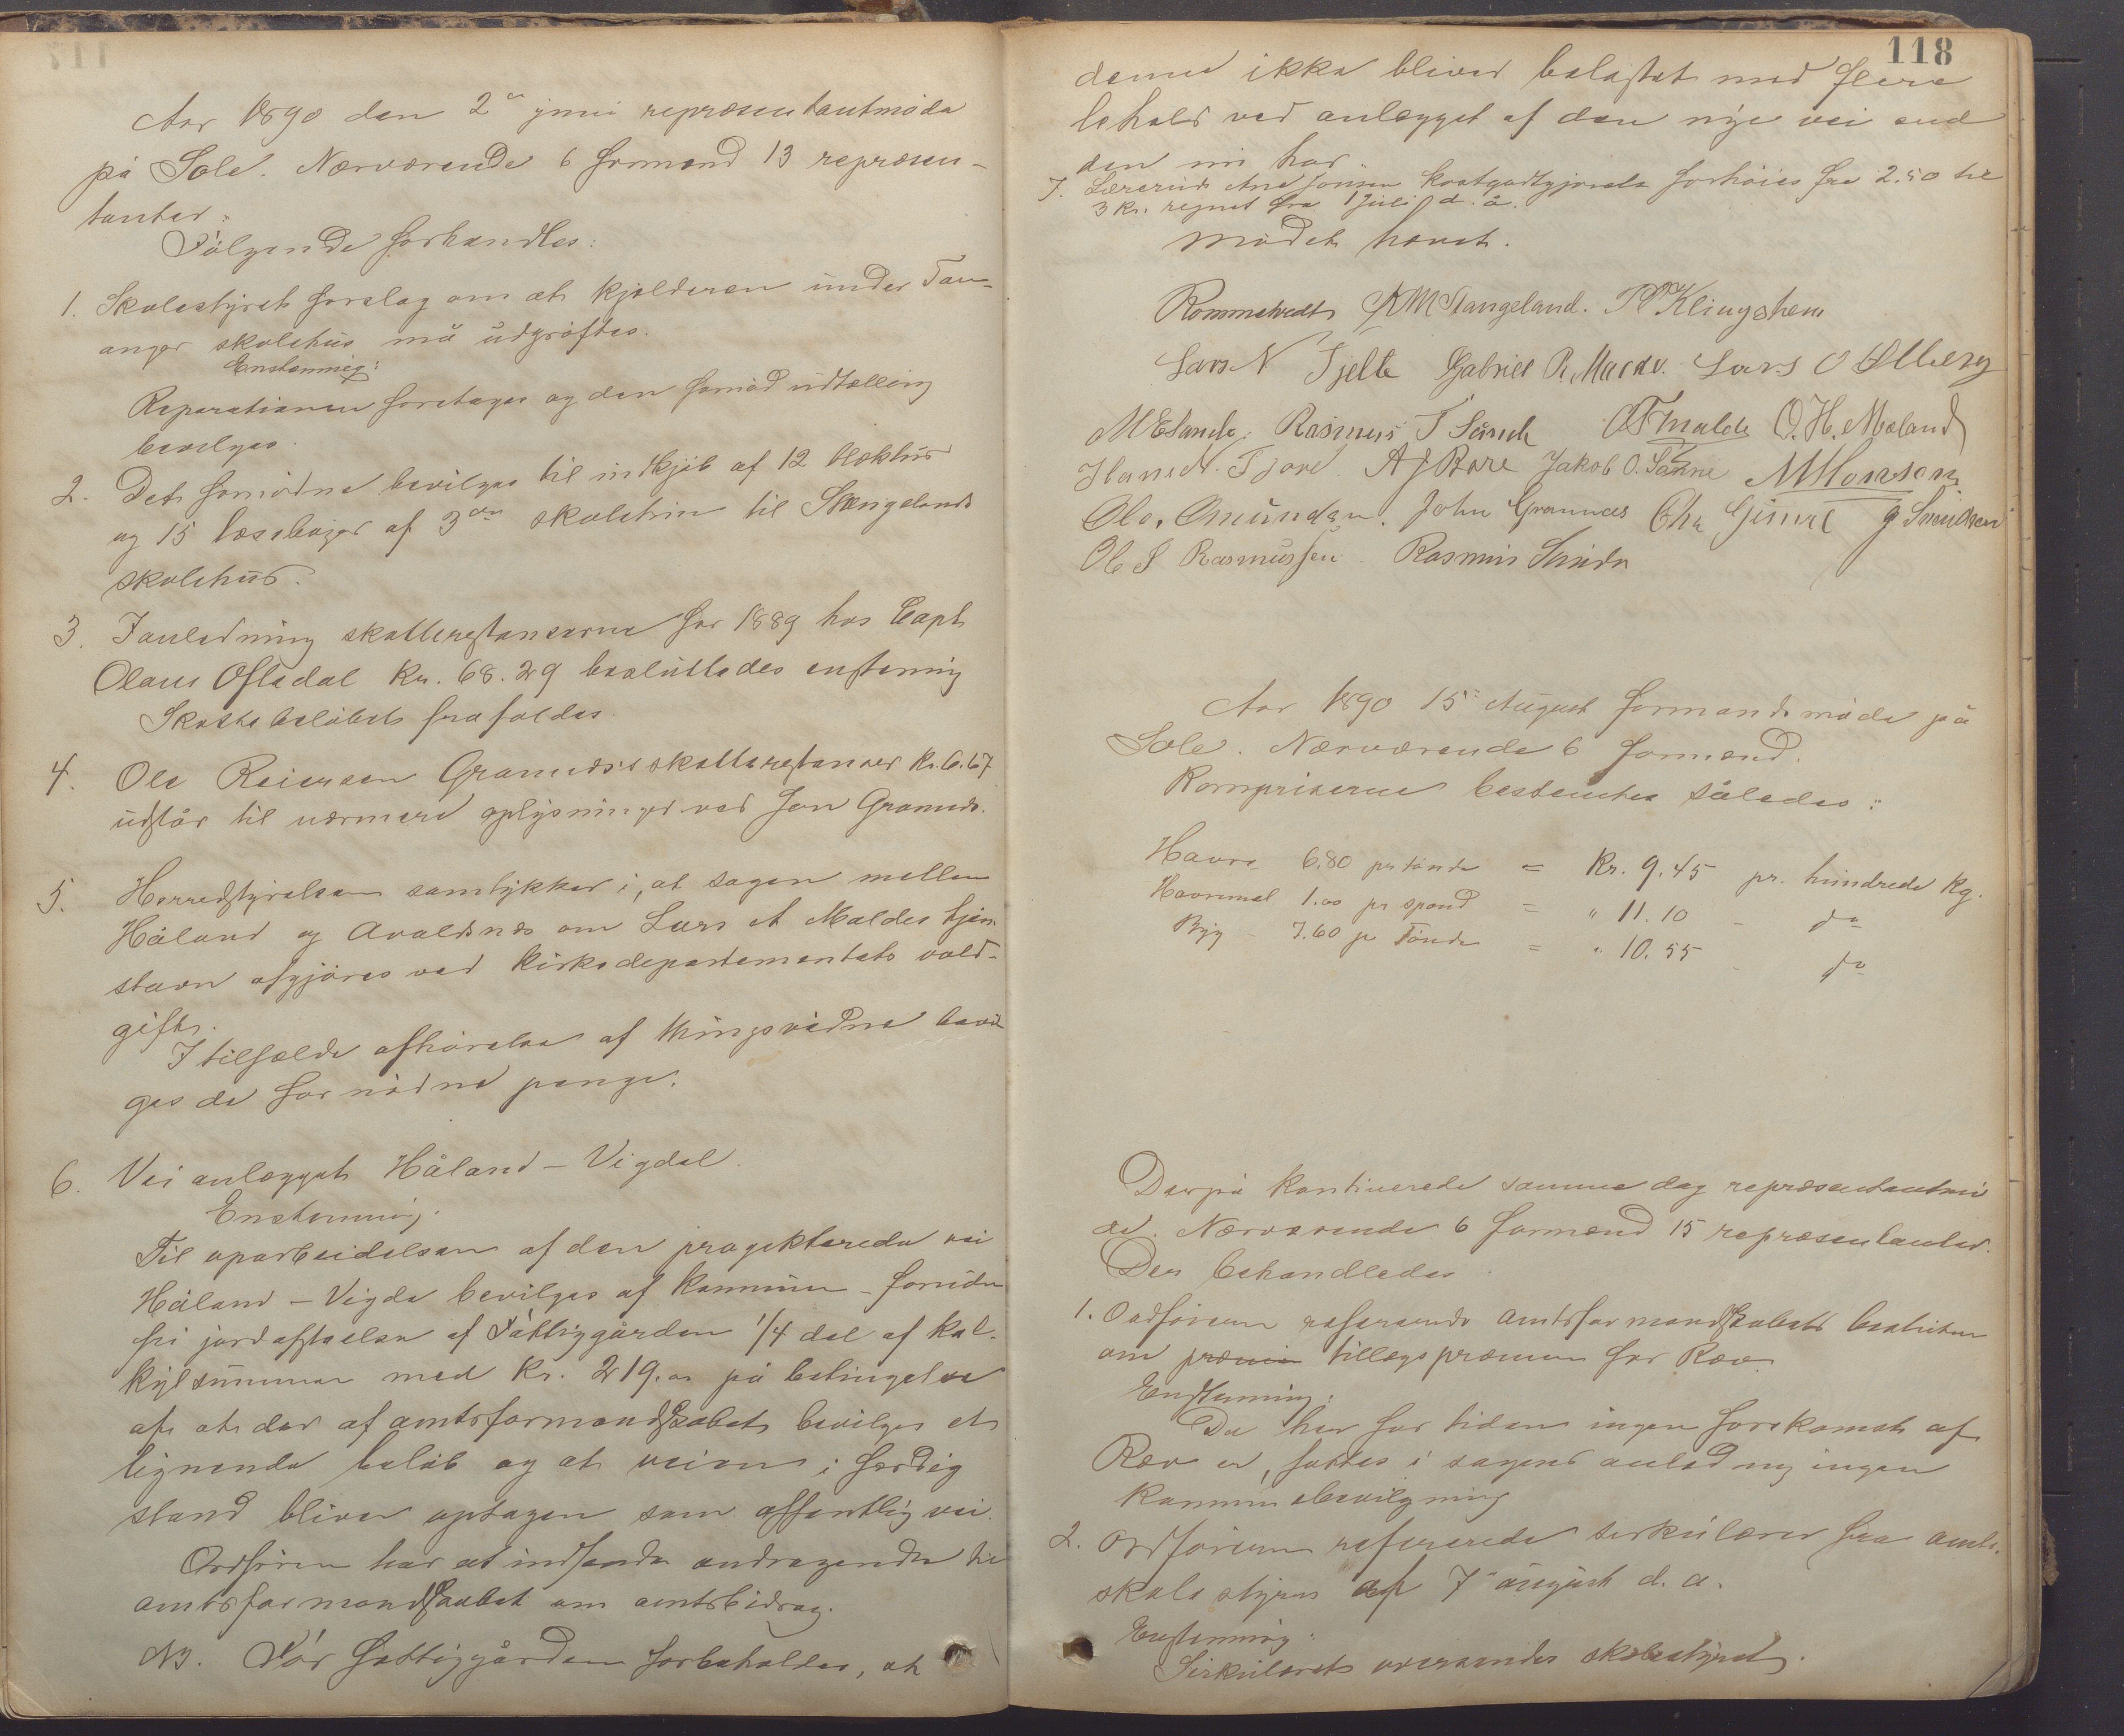 Aar 1890 den 2en juni repræsentantmöde
på Sole. Nærværende 6 formænd 13 repræsen-
tanter.
Fölgende forhandles:
1. Skolestyret forslag om at kjelderen under Tan-
anger skolehus må udgröftes.
Enstemmig:
Reparationen foretages og den fornöd udtælling
bevilges.
2. Det fornödne bevilges til indkjöb af 12 blækhus
og 15 læsebøger af 3die skoletrin til Stangelands
skolehus.
3. I anledning skatterestanserne for 1889 hos Capt
Olaus Ofstedal Kr. 68.29 besluttedes enstemig
Skattebelöbet frafaldes.
4. Ole Reiersen Grannæs's skatterestanser Kr. 6.67
udstår til nærmere oplysninger ved Jon Grannæs.
5. Herredstyrelsen samtykker i, at sagen mellem
Håland og Avaldsnes om Lars A Maldes hjem-
stavn afgjöres ved kirkedepartementets vold-
gift.
I tilfælde afhörelse af thingsvidne bevil
ges de fornödne penge.
6. Veianlægget Håland - Vigdal.
Enstemmig.
Til oparbeidelsen af den projekterede vei
Håland - Vigda bevilges af Kommunen - foruden
fri jordafståelse af Fattiggården 1/4 del af kal-
kylsummen med Kr. 219.00 på betingelse
af at der af amtsformandskabet bevilges et
lignende belöb og at veien i færdig
stand bliver optagen som offentlig vei.
Ordfören har at indsende andragende til
amtsformandskabet om amtsbidrag.
NB. For Fattiggården forbeholdes, at
118
denne ikke bliver belastet med flere
lehold ved anlægget af den nye vei end
den nu har.
7. Lærerinde Ane Jonsen kostgodtgjörelse forhöies fra 2.50 til
3 Kr. regnet fra 1 Juli d. å.
Mödet hævet.
Rommetvedt KM Stangeland. Klingsheim
Lars N Tjelte Gabriel R. Lars O Ølberg
M E Sande. Rasmus T Sunde O T Malde O. H. Meland
Hans N. Tjore A J Bore Jakob O. Sømme M Monsen
Ole. Omundsen. John Grannæs Chr Gimre
Ole S Rasmussen. Rasmus Sunde
Aar 1890 15de August formandsmöde på
Sole. Nærværende 6 formænd.
Kornpriserne bestemtes således:
Havre 6.80 pr tönde = Kr. 9.45 pr. hundrede kg.
Havremel 1.00 pr spand = " 11.10 - do
Byg - 7.60 pr Tönde = " 10.55 - do
Derpå kontinuerede samme dag repræsentantmö
de. Nærværende 6 formænd 15 repræsentanter.
Der behandledes
1. Ordföreren refererende amtsformandskabets beslutn
om præmie tillægspræmie for Ræv.
Enstemmig:
Da her for tiden ingen forekomst af
Ræv er, fattes i sagens anledning ingen
kommunebevilgning
2. Ordföreren refererede sirkulærer fra amts.
skolestyret af 7de august d. a.
Enstemmig:
Sirkulæret oversendes skolestyret.